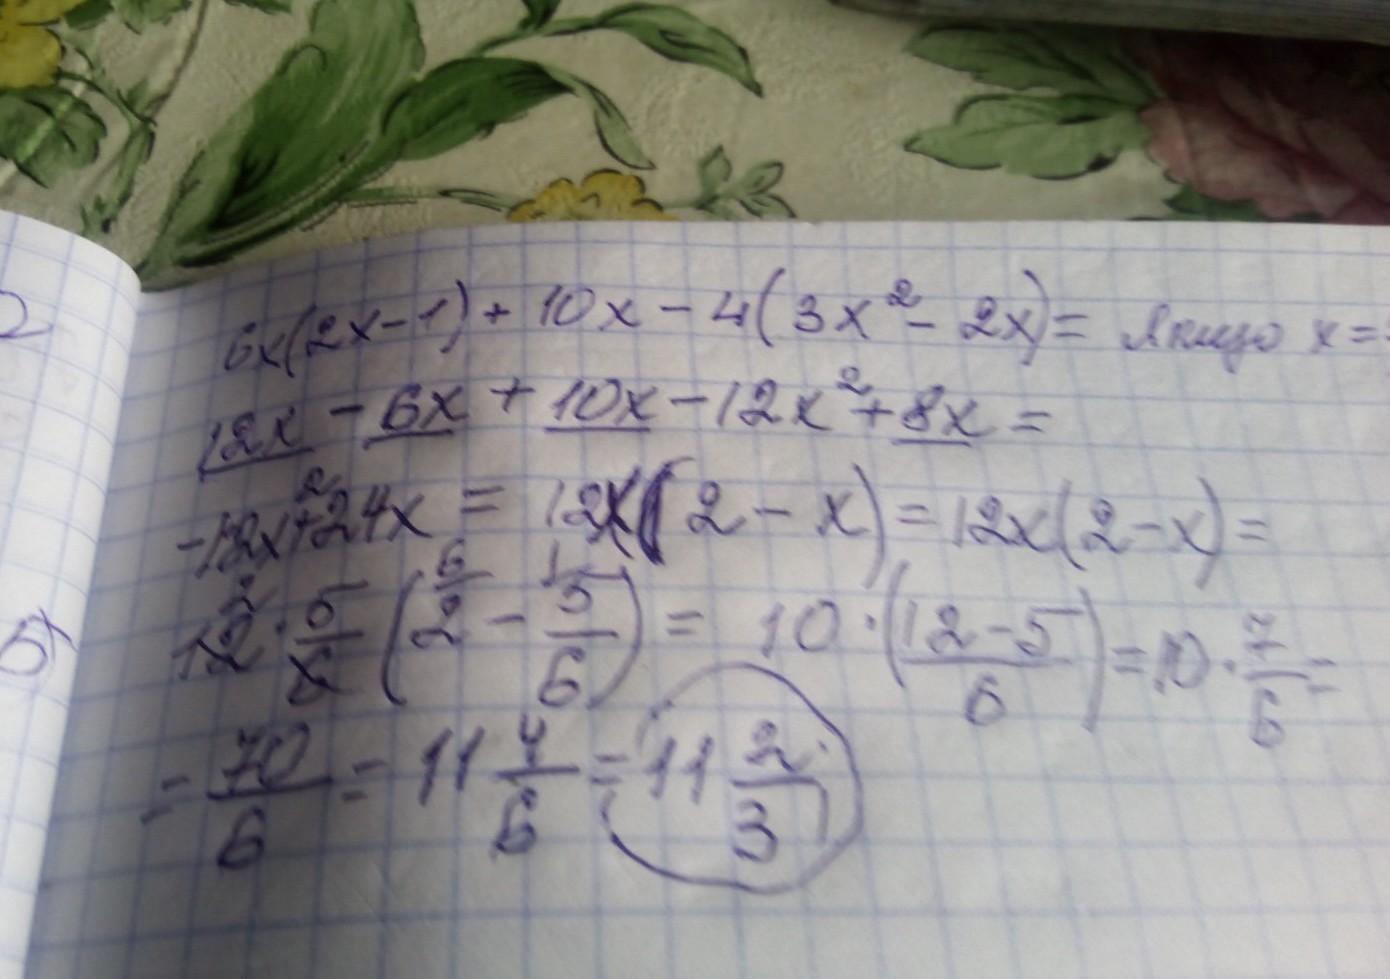 6x(2x-1)+10x-4(3x²-2x)= якщо x=
12x-6x+10x-12x²+8x=
-12x²+24x=12x(2-x)=12x(2-x)=
12·5/6(2-5/6)=10·(12-5/6)=10·7/6=
=70/6=11 4/6=11 2/3